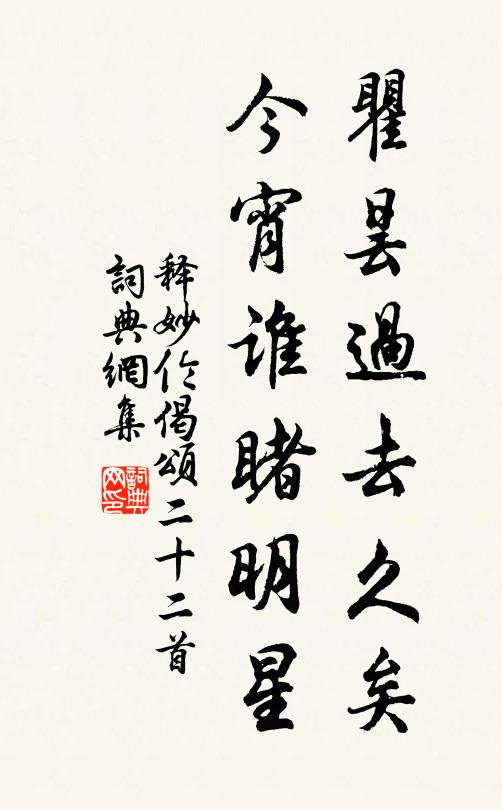 瞿曇過去久矣
今宵谁睹明星
释妙伦偈頌二十二首
詞典網集
詞典網印